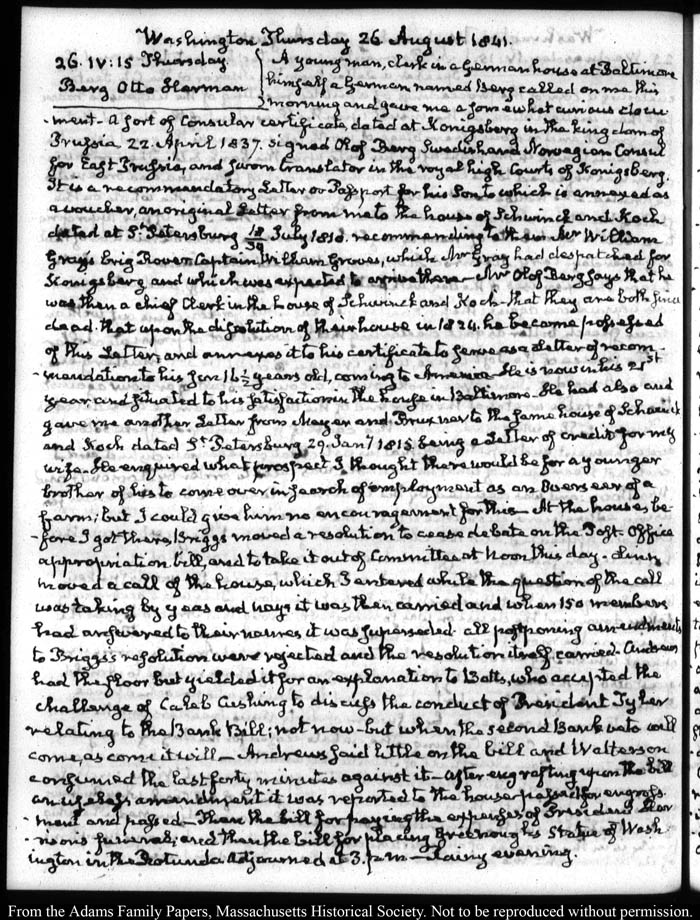 Washington Thursday 26 August 1841.
26. IV:15 Thursday
Berg Otto Herman
A young man, clerk in a German house at Baltimore
himself a German named Berg called on me this
morning and gave me a somewhat curious docu
-ment - A sort of Consular certificate, dated at Konigsberg in the kingdom of
Prussia 22. April 1837. signed Olof Berg Swedish and Norwegian Consul
for East Prussia, and sworn translator in the royal high Courts of Konigsberg.
It is a recommendatory Letter or Passport for his Son to which is annexed as
a voucher, an original Letter from me to the house of Schwinck and Koch
dated at St. Petersburg 18/30 July 1810. recommending to them Mr William
Gray's Brig Rover Captain William Groves, which Mr Gray had despatched for
Konigsberg and which was expected to arrive there - Mr Olof Berg says that he
was then a chief Clerk in the house of Schwinck and Koch - that they are both since
dead. that upon the dissolution of their house in 1824. he became possessed
of this Letter, and annexes it to his certificate to serve as a Letter of recom
-mendation to his Son 16½ years old, coming to America - He is now in his 21st
year and situated to his satisfaction in the house in Baltimore. He had also and
gave me another Letter from Meyer and Bruxner to the same house of Schwinck
and Koch dated St. Petersburg 29. Jany 1815. being a Letter of credit for my
wife. He enquired what prospect I thought there would be for a younger
brother of his to come over in search of employment as an Overseer of a
farm; but I could give him no encouragement for this - At the house, be
-fore I got there, Briggs moved a resolution to cease debate on the Post-Office
appropriation bill, and to take it out of Committee at Noon this day - Linn
moved a call of the house, which I entered while the question of the call
was taking by yeas and nays it was then carried and when 150 members
had answered to their names it was superseded. all postponing amendments
to Briggs's resolution were rejected and the resolution itself carried. Andrews
had the floor but yielded it for an explanation to Botts, who accepted the
challenge of Caleb Cushing to discuss the conduct of President Tyler
relating to the Bank Bill; not now - but when the second Bank veto will
come, as come it will - Andrews said little on the bill and Watterson
consumed the last forty minutes against it - after engrafting upon the bill
an useless amendment it was reported to the house passed for engross
-ment and passed - Then the bill for paying the expenses of President Harri
-sons funeral; and then the bill for placing Greenough's Statue of Wash
-ington in the Rotunda Adjourned at 3. p.m - Rainy evening.
From the Adams Family Papers, Massachusetts Historical Society. Not to be reproduced without permission.